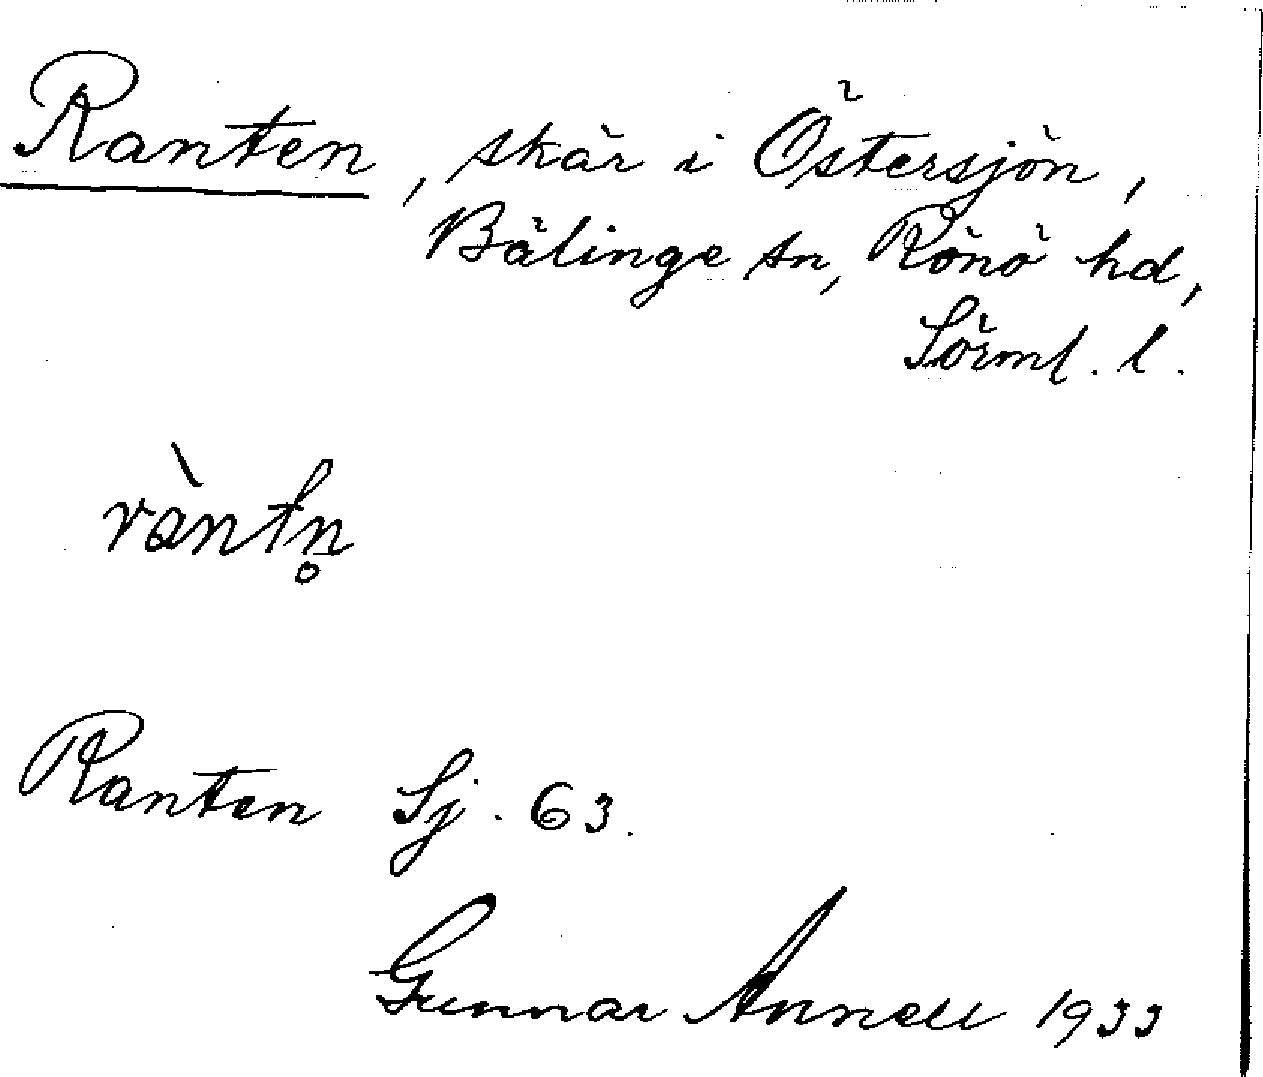 Ranten, skär i Östersjön,
Bälinge sn, Rönö hd,
Sörml. l.
ràntn̥
Ranten Sj. 63.
Gunnar Annell 1933